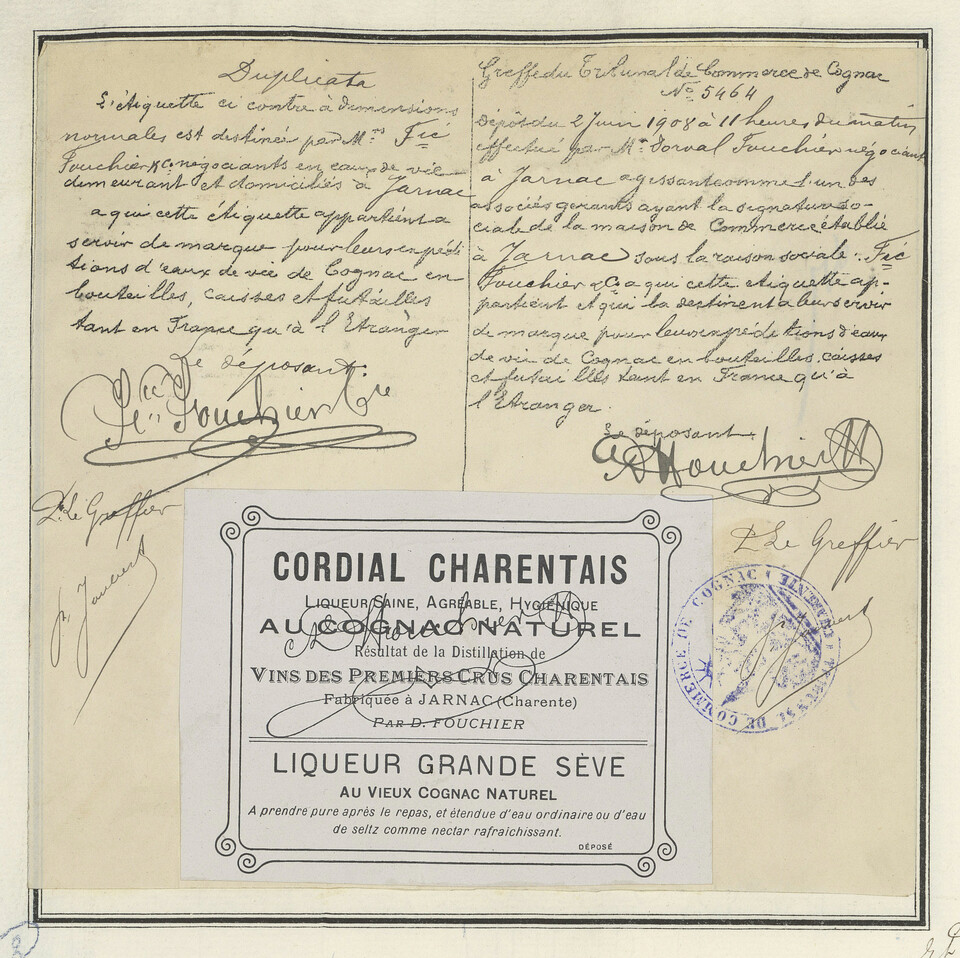 Duplicata
L'étiquette ci contre à dimensions
normales est destinée par Mrs Fic
Fouchier & Cie négociants en eaux de vie
demeurant et domiciliés à Jarnac
a qui cette étiquette appartient a
servir de marque pour leurs expédi
tions d'eaux de vie de Cognac en
bouteilles, caisses et futailles
tant en France qu'à l'Etranger
Le déposant.
Fouchier & Cie
Pr Le Greffier
Greffe du Tribunal de Commerce de Cognac
No 5464
Dépôt du 2 Juin 1908 à 11 heures du matin
effectué par Mr Dorval Fouchier négociant
à Jarnac agissant comme l'un des
associés gérants ayant la signature so-
ciale de la maison de Commerce établie
à Jarnac sous la raison sociale: Fic
Fouchier & Cie a qui cette étiquette ap-
partient et qui la destinent a leur servir
de marque pour leurs expéditions d'eaux
de vie de Cognac en bouteilles, caisses
et futailles tant en France qu'à
l'Etranger.
Le déposant
Fouchier
Pr Le Greffier
TRIBUNAL DE COMMERCE DE COGNAC
CORDIAL CHARENTAIS
LIQUEUR SAINE, AGRÉABLE, HYGIÉNIQUE
AU COGNAC NATUREL
Résultat de la Distillation de
VINS DES PREMIERS CRUS CHARENTAIS
Fabriquée à JARNAC (Charente)
PAR D. FOUCHIER
LIQUEUR GRANDE SÈVE
AU VIEUX COGNAC NATUREL
A prendre pure après le repas, et étendue d'eau ordinaire ou d'eau
de seltz comme nectar rafraichissant.
DÉPOSÉ